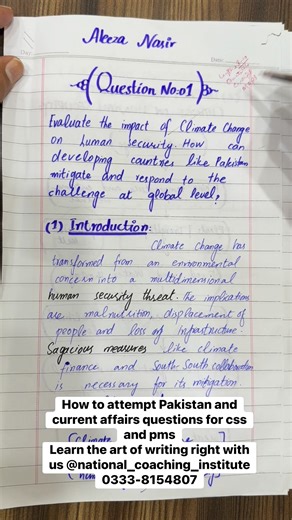 Aleeza Nasir
Question No:01
Evaluate the impact of Climate Change
on human security. How can
developing countries like Pakistan
mitigate and respond to the
challenge at global level?
(1) Introduction:
Climate change has
transformed from an environmental
concern into a multidimensional
human security threat. The implications
are malnutrition, displacement of
people and loss of infrastructure.
Sagicious measures like climate
finance and South-South collaboration
is necessary for its mitigation.
How to attempt Pakistan and
current affairs questions for css
and pms
Learn the art of writing right with
us @national_coaching_institute
0333-8154807